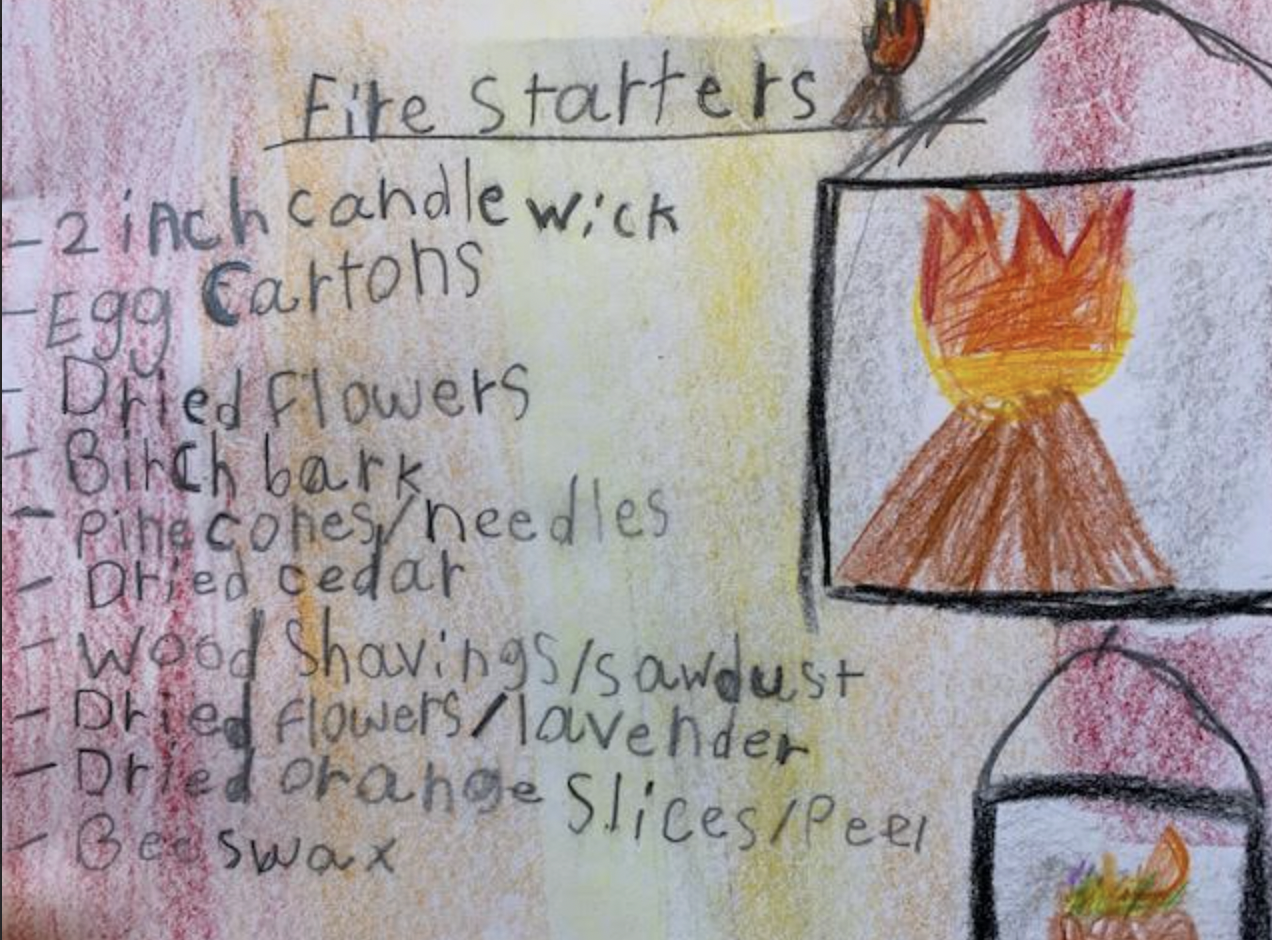 Fire Starters
- 2 inch candle wick
- Egg Cartons
- Dried Flowers
- Birch bark
- Pine cones/needles
- Dried cedar
- Wood Shavings/sawdust
- Dried Flowers/lavender
- Dried orange Slices/Peel
- Beeswax